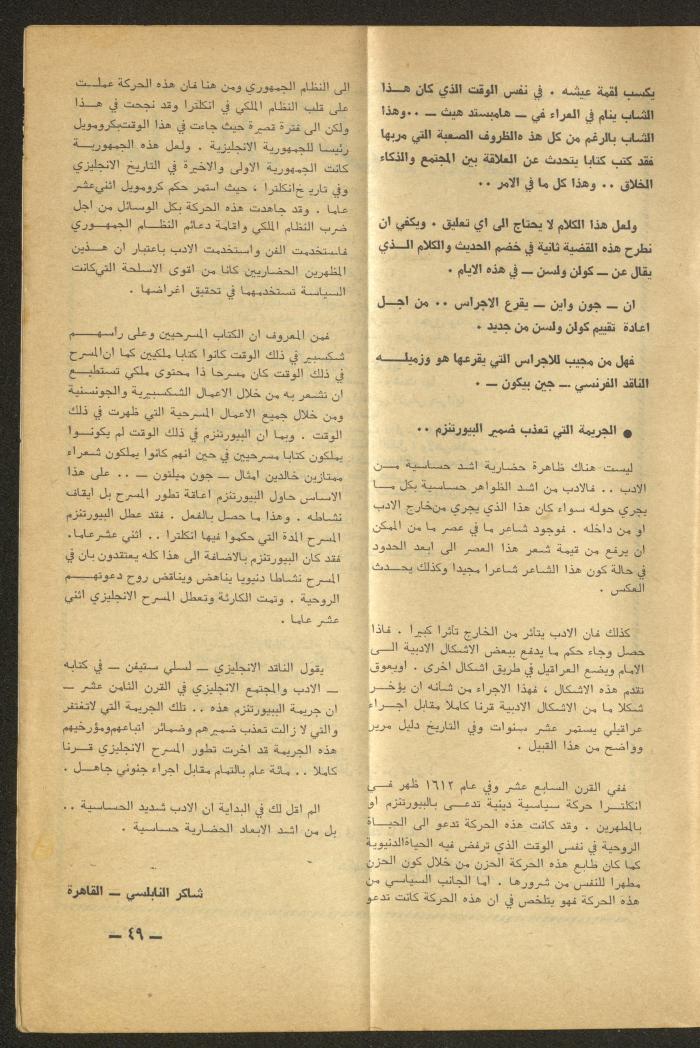 يكسب لقمة عيشه . في نفس الوقت الذي كان هـــذا
الشاب ينام في العراء في ــ هامبستد هيث ــ ..وهذا
الشاب بالرغم من كل هذ هالظروف الصعبة التي مربها
فقد كتب كتابا يتحدث عن العلاقة بين المجتمع والذكاء
الخلاق .. وهذا كل ما في الامر ..
ولعل هذا الكلام لا يحتاج الى اي تعليق . ويكفي ان
نطرح هذه القضية ثانية في خضم الحديث والكلام الــذي
يقال عن ــ كولن ولسن ــ في هذه الايام .
ان ــ جون واين ــ يقرع الاجراس .. من اجــل
اعادة تقييم كولن ولسن من جديد .
فهل من مجيب للاجراس التي يقرعها هو وزميلـــه
الناقد الفرنسي ــ جين بيكون ــ .
● الجريمة التي تعذب ضمير البيورتنزم ..
ليست هناك ظاهرة حضارية اشد حساسية مــن
الادب .. فالادب من اشد الظواهر حساسية بكل مــا
يجري حوله سواء كان هذا الذي يجري منخارج الادب
او من داخله . فوجود شاعر ما في عصر ما من الممكن
ان يرفع من قيمة شعر هذا العصر الى ابعد الحدود
في حالة كون هذا الشاعر شاعرا مجيدا وكذلك يحــدث
العكس .
كذلك فان الادب يتأثر من الخارج تأثرا كبيرا . فاذا
حصل وجاء حكم ما يدفع ببعض الاشكال الادبية الــى
الامام ويضع العراقيل في طريق اشكال اخرى . اويعوق
تقدم هذه الاشكال ، فهذا الاجراء من شأنه ان يؤخــر
شكلا ما من الاشكال الادبية قرنا كاملا مقابل اجــراء
عراقيلي يستمر عشر سنوات وفي التاريخ دليل مرير
وواضح من هذا القبيل .
ففي القرن السابع عشر وفي عام ١٦١٢ ظهر فــي
انكلتــرا حركة سياسية دينية تدعــى بالبيورتنزم او
بالمطهرين . وقد كانت هذه الحركة تدعو الى الحيــاة
الروحية في نفس الوقت الذي ترفض فيه الحياةالدنيوية
كما كان طابع هذه الحركة الحزن من خلال كون الحزن
مطهرا للنفس من شرورها . اما الجانب السياسي من
هذه الحركة فهو يتلخص في ان هذه الحركة كانت تدعو
الى النظام الجمهوري ومن هنا فان هذه الحركة عملــت
على قلب النظام الملكي في انكلترا وقد نجحت في هــذا
ولكن الى فترة قصيرة حيث جاءت في هذا الوقتبكرومويل
رئيسا للجمهورية الانجليزية . ولعل هذه الجمهوريــة
كانت الجمهورية الاولى والاخيرة في التاريخ الانجليزي
وفي تاريخ انكلترا ، حيث استمر حكم كرومويل اثنيعشر
عاما . وقد جاهدت هذه الحركة بكل الوسائل من اجل
ضرب النظام الملكي واقامة دعائم النظــام الجمهــوري
فاستخدمت الفن واستخدمت الادب باعتبار ان هــذين
المظهرين الحضاريين كانا من اقوى الاسلحة التيكانت
السياسة تستخدمهما في تحقيق اغراضها .
فمن المعروف ان الكتاب المسرحيين وعلى راسهـــم
شكسبير في ذلك الوقت كانوا كتابا ملكيين كما انالمسرح
في ذلك الوقت كان مسرحا ذا محتوى ملكي تستطيــع
ان نشعر به من خلال الاعمال الشكسبيرية والجونسنية
ومن خلال جميع الاعمال المسرحية التي ظهرت في ذلك
الوقت . وبما ان البيورتنزم في ذلك الوقت لم يكونــوا
يملكون كتابا مسرحيين في حين انهم كانوا يملكون شعراء
ممتازين خالدين امثال ــ جون ميلتون ــ .. على هذا
الاساس حاول البيورتنزم اعاقة تطور المسرح بل ايقاف
نشاطه . وهذا ما حصل بالفعل . فقد عطل البيورتنزم
المسرح المدة التي حكموا فيها انكلترا .. اثني عشرعاما.
فقد كان البيورتنزم بالاضافة الى هذا كله يعتقدون بان في
المسرح نشاطا دنيويا يناهض ويناقض روح دعوتهــم
الروحية . وتمت الكارثة وتعطل المسرح الانجليزي اثني
عشر عاما .
يقول الناقد الانجليزي ــ لسلي ستيفن ــ في كتابه
ــ الادب والمجتمع الانجليزي في القرن الثامن عشر ــ
ان جريمة البيورتنزم هذه .. تلك الجريمة التي لاتغتفر
والتي لا زالت تعذب ضميرهم وضمائر اتباعهمومؤرخيهم
هذه الجريمة قد اخرت تطور المسرح الانجليزي قــرنا
كاملا .. مائة عام بالتمام مقابل اجراء جنوني جاهــل .
الم اقل لك في البداية ان الادب شديد الحساسية ..
بل من اشد الابعاد الحضارية حساسية .
شاكر النابلسي ــ القاهرة
ــ ٤٩ ــ